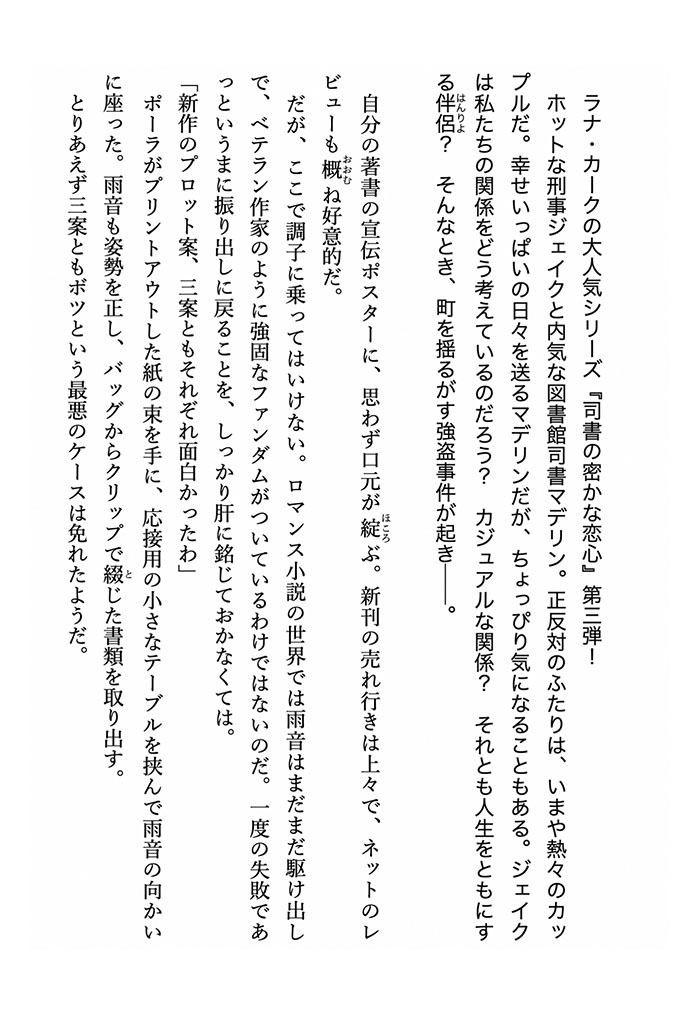 ラナ・カークの大人気シリーズ『司書の密かな恋心』第三弾！
ホットな刑事ジェイクと内気な図書館司書マデリン。正反対のふたりは、いまや熱々のカッ
プルだ。幸せいっぱいの日々を送るマデリンだが、ちょっぴり気になることもある。ジェイク
は私たちの関係をどう考えているのだろう？　カジュアルな関係？　それとも人生をともにす
る伴侶？　そんなとき、町を揺るがす強盗事件が起き――。
自分の著書の宣伝ポスターに、思わず口元が綻ぶ。新刊の売れ行きは上々で、ネットのレ
ビューも概ね好意的だ。
だが、ここで調子に乗ってはいけない。ロマンス小説の世界では雨音はまだまだ駆け出し
で、ベテラン作家のように強固なファンダムがついているわけではないのだ。一度の失敗であ
っというまに振り出しに戻ることを、しっかり肝に銘じておかなくては。
「新作のプロット案、三案ともそれぞれ面白かったわ」
ポーラがプリントアウトした紙の束を手に、応接用の小さなテーブルを挟んで雨音の向かい
に座った。雨音も姿勢を正し、バッグからクリップで綴じた書類を取り出す。
とりあえず三案ともボツという最悪のケースは免れたようだ。